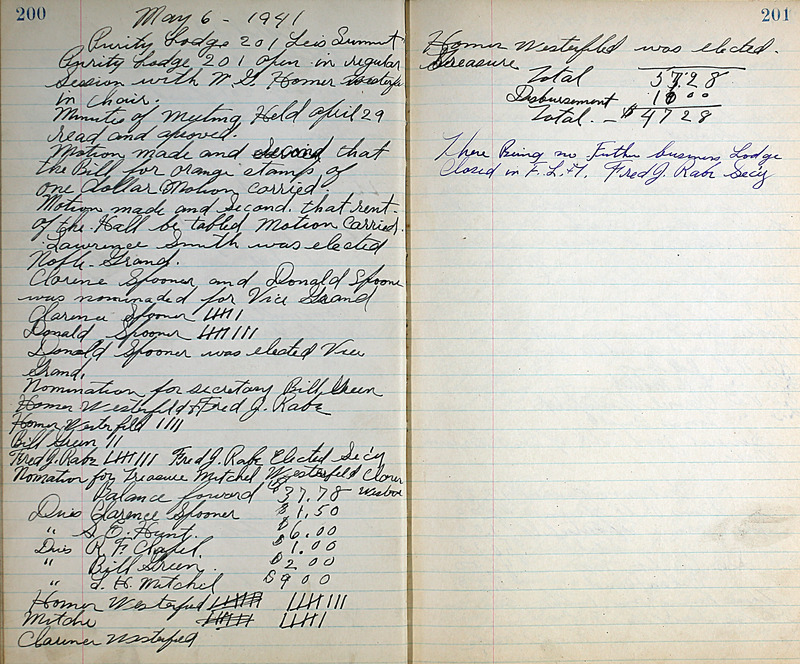 200
May 6 - 1941
Purity Lodge 201 Leis Summit
Purity Lodge 201 open in regular
Session with N.G. Homer Westerfe
in Chair.
Minutes of Meeting Held april 29
read and aproved.
Motion made and Second that
the Bill for orange stamps of
one Dollar Motion Carried.
Motion made and Second. that rent-
of the Hall be tabled Motion Carried.
Lawrence Smith was elected
Noble Grand.
Clarence Spooner and Donald Spoone
was nominaded for Vice Grand
Clarence Spooner 卌 I
Donald Spooner 卌 III
Donald Spooner was elected Vice
Grand.
Nomination for secretary Bill Green
Homer Westerfeld & Fred J. Rabe
Homer Westerfeld IIII
Bill Green II
Fred J. Rabe 卌 III Fred J. Rabe Elected Sec'y
Nomation for Treasure Mitchel Westerfeld Clarer
Balance forward $37.78
Dues Clarence Spooner $1.50
" S. O. Hunt. $6.00
Dues R. F. Chapel. $1.00
" Bill Green. $2 00
" L. H. Mitchel $9 00
Homer Westerfied 卌 III
Mitche 卌 I
Clarence Westerfied
201
Homer Westerfled was elected.
Treasure
Total 57.28
Disbursement 10 00
Total. - $47 28
There Being no Futher business Lodge
Closed in F. L. & T. Fred J. Rabe Sec'y